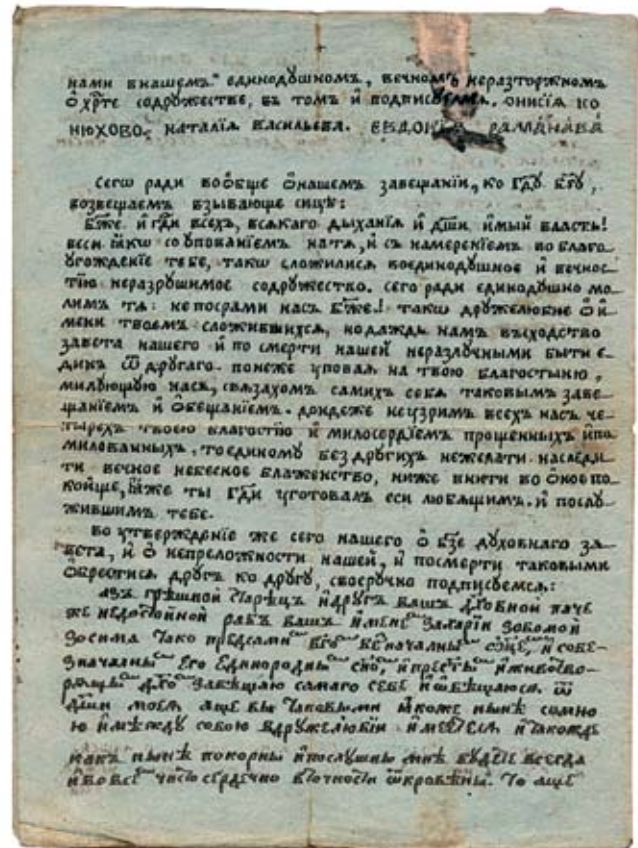 нами внашемъ единодꙋшномъ, вечномъ неразторжномъ
ѻ҆ хрⷭ҇тѣ содрꙋжествѣ, въ томъ и҆ подписꙋемся. ѻнисїа ко
нюхово. наталїа васильева. ЕВДОКИѦ РАМАНАВА
Сегѡ ради воѻбще ѻнашемъ завещанїи, ко гдⷭ҇ꙋ бг҃ꙋ,
возвещаемъ взывающе сице:
Бж҃е и҆ гдⷭ҇и всехъ, всякаго дыханїя и҆ дш҃и и҆мый власть!
веси ꙗ҆кѡ со ѹпованїемъ на тѧ, и҆ съ намеренїемъ во благо
ѹгожденїе тебе, такѡ сложилися воединодꙋшное и҆ вечнос
тїю неразрꙋшимое содрꙋжество. сего ради единодꙋшно мо
лимъ тѧ: не посрами насъ бж҃е! такѡ дрꙋжелюбне ѻ҆ и҆
мени твоемъ сложившихся, но даждь нам въсходство
завета нашего и҆ по смерти нашей неразлꙋчными быти е
динъ ѿ дрꙋгаго. понеже ѹповая на твою благостыню,
милꙋющꙋю насъ, связахомъ самихъ себя таковымъ заве
щанїемъ и҆ ѻбещанїемъ. дондеже не ѹзримъ всех насъ че
тырехъ твоею благостїю и҆ милосердїемъ прощенныхъ и҆ по
милованныхъ, то единомꙋ без дрꙋгихъ не желати наследи
ти вечное небесное блаженство, ниже внити во ѻ҆ное по
койще, ꙗ҆же ты гдⷭ҇и ѹготовалъ еси любящимъ и҆ послꙋ
жившимъ тебе.
Во ѹтвержденїе же сего нашего ѻ҆ бз҃е дꙋховнаго за
вета, и҆ ѻ҆ непреложности нашей, и҆ посмерти таковыми
ѻбрестися дрꙋгъ ко дрꙋгꙋ, своерꙋчно подписꙋемся:
Азъ грѣшной старецъ и҆ дрꙋгъ вашъ дх҃овной паче
же недостойной рабъ вашъ и҆мене Захарїи зовомой
Зосима тако предсамиⷨ бг҃оⷨ безначалныⷨ ѻц҃еⷨ, и҆ собе
значалныⷨ Его Единороднымъ сн҃оⷨ, и҆ престы҃ⷨ и҆ живо тво
рящиⷨ дх҃оⷨ завѣщаю самаго себе и҆ ѡбѣщаюся ѿ
дш҃и моея аще вы таковыми ꙗ҆коже нынѣ со мно
ю и҆ междꙋ собою в дрꙋжелюбїи и҆
какъ нынѣ покорны и҆ послꙋшны мнѣ бꙋдете всегда
и҆ во всеⷨ чисто сердечно в точности ѿкровенны. То аще